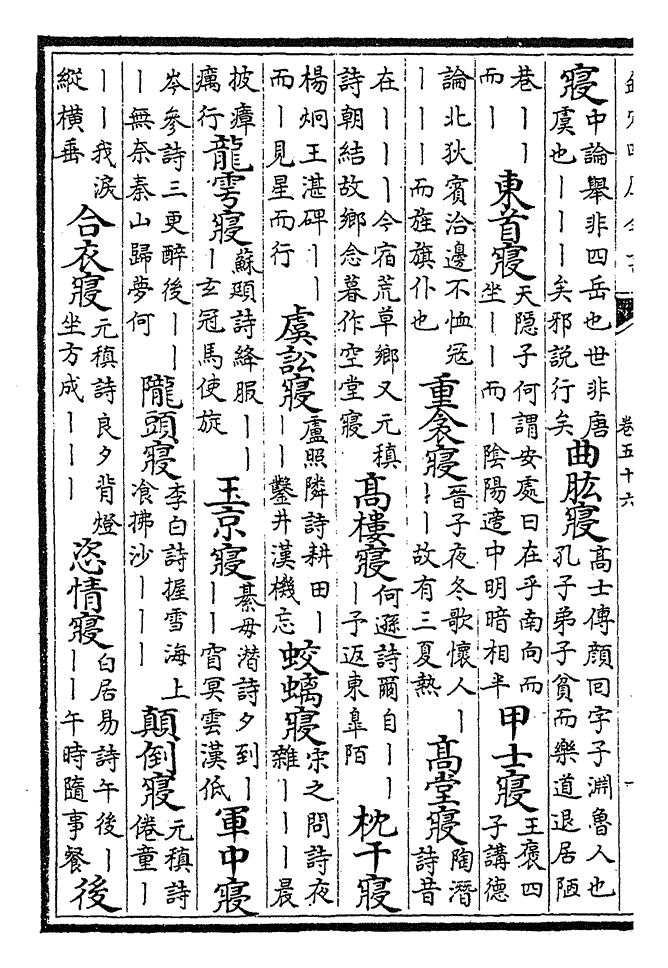 卷五十六
一
寢
中論舉非四岳也世非唐
虞也丨丨丨矣邪説行矣
曲肱寢
高士傳顔回字子淵魯人也
孔子弟子貧而樂道退居陋
巷丨丨
而丨
東首寢
天隱子何謂安處曰在乎南向而
坐丨丨而丨陰陽適中明暗相半
甲士寢
王褒四
子講德
論北狄賓洽邊不恤冦
丨丨丨而旌旗仆也
重衾寢
晉子夜冬歌懷人丨
丨丨故有三夏熱
高堂寢
陶潛
詩昔
在丨丨丨今宿荒草鄉又元稹
詩朝結故鄉念暮作空堂寢
高樓寢
何遜詩爾自丨丨
丨子返東臯陌
枕干寢
楊炯王湛碑丨丨
而丨見星而行
虞訟寢
盧照隣詩耕田丨
丨丨鑿井漢機忘
蛟螭寢
宋之問詩夜
雜丨丨丨晨
披瘴
癘行
龍雩寢
蘇頲詩絳服丨丨
丨玄冠馬使旋
玉京寢
綦毋潛詩夕到丨
丨丨窅冥雲漢低
軍中寢
岑參詩三更醉後丨丨
丨無奈秦山歸夢何
隴頭寢
李白詩握雪海上
飡拂沙丨丨丨
顛倒寢
元稹詩
倦童丨
丨丨我淚
縱橫垂
合衣寢
元稹詩良夕背燈
坐方成丨丨丨
恣情寢
白居易詩午後丨
丨丨午時隨事餐
後